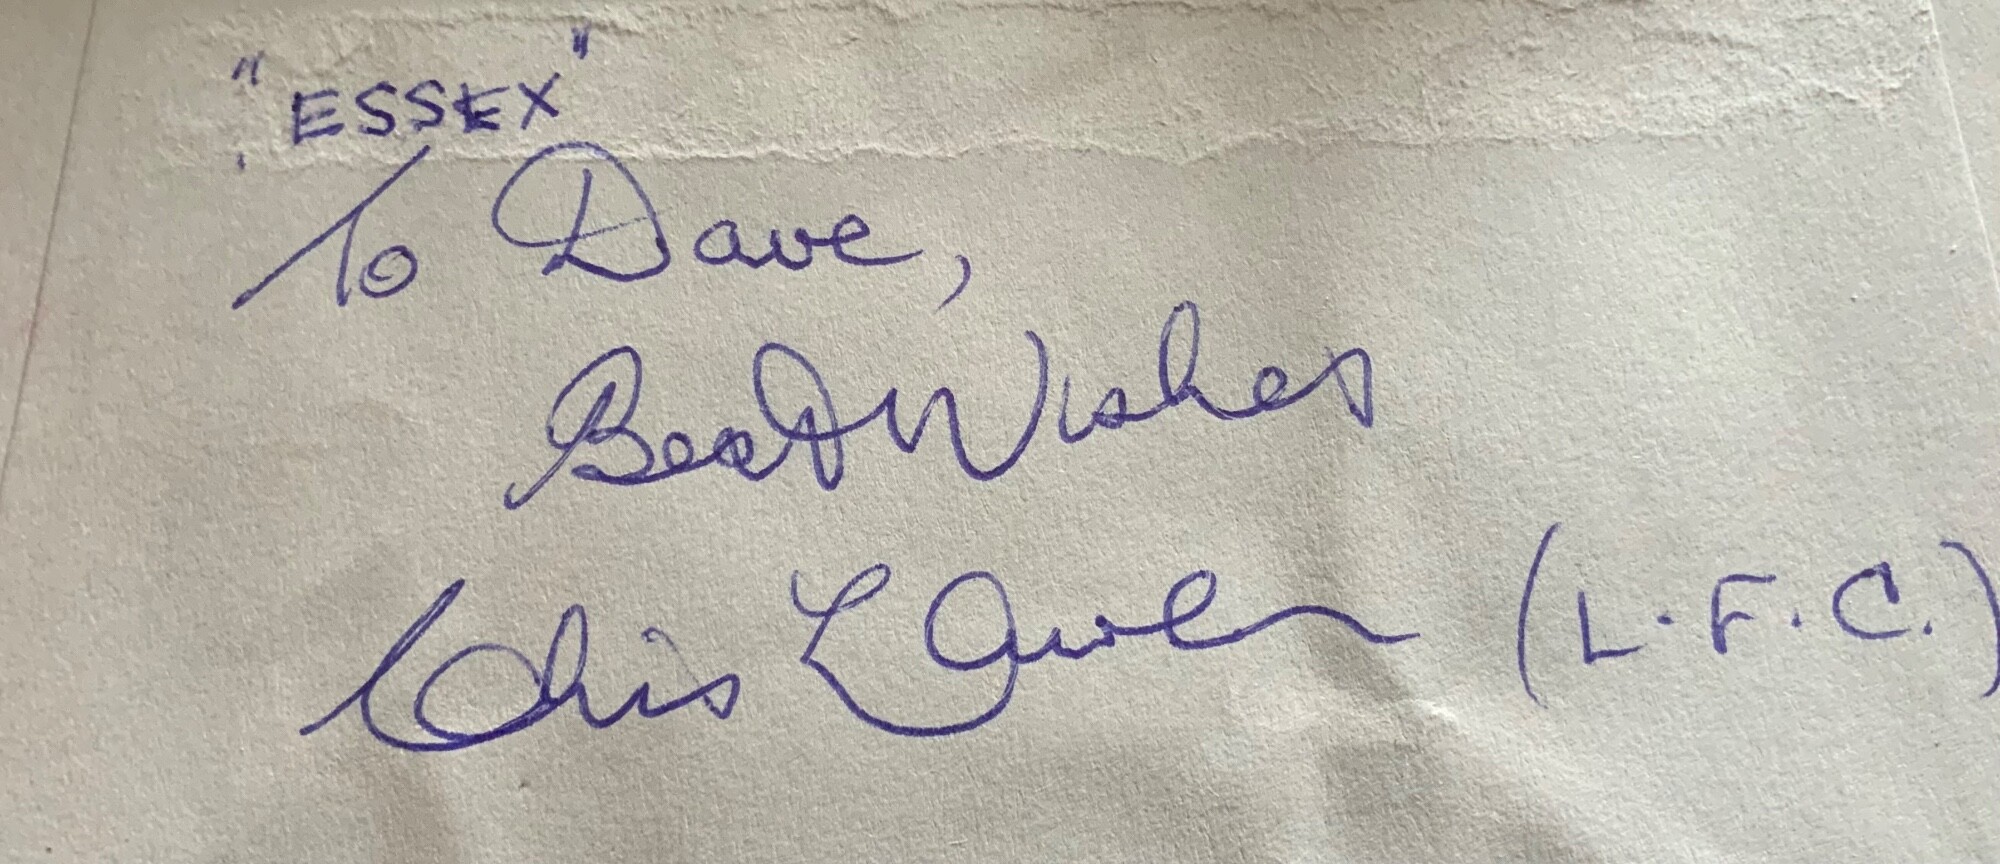 "ESSEX"
To Dave,
Best Wishes
Chris L Owen (L.F.C.)